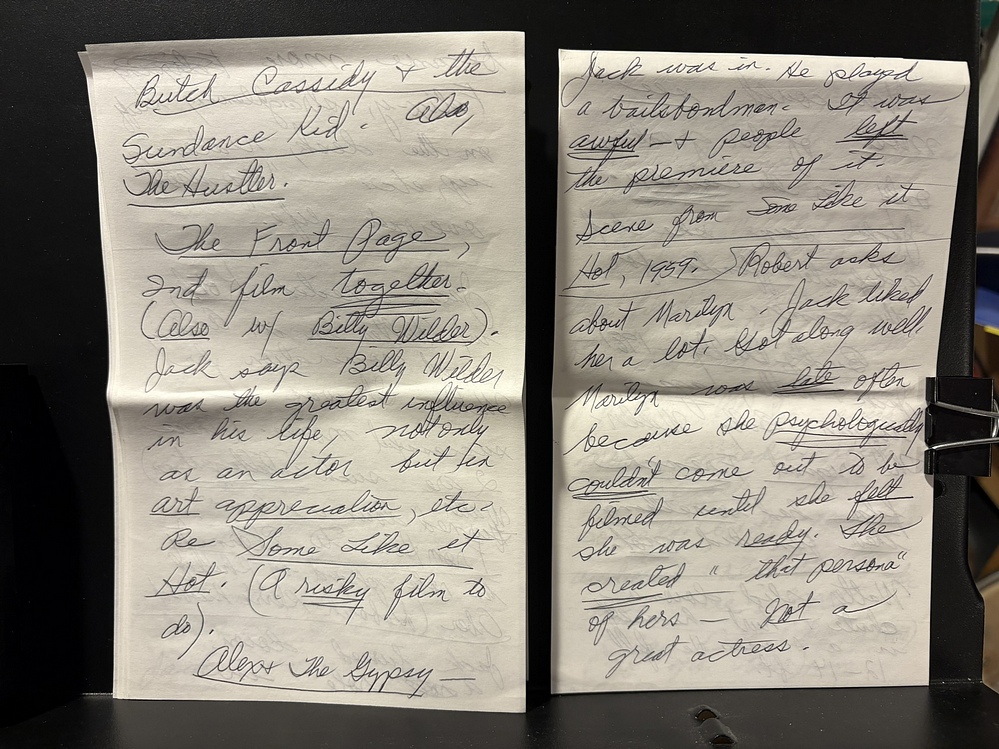 Butch Cassidy + the
Sundance Kid. Also,
The Hustler.
The Front Page,
2nd film together.
(Also w/ Billy Wilder).
Jack says Billy Wilder
was the greatest influence
in his life, not only
as an actor but in
art appreciation, etc.
Re Some Like it
Hot. (A risky film to
do).
Alex + The Gypsy —
Jack was in. He played
a bailsbondman. It was
awful — + people left
the premiere of it.
Scene from Some Like it
Hot, 1959. Robert asks
about Marilyn. Jack liked
her a lot. Got along well.
Marilyn was late often
because she psychologically
couldn't come out to be
filmed until she felt
she was ready. She
created "that persona"
of hers — Not a
great actress.